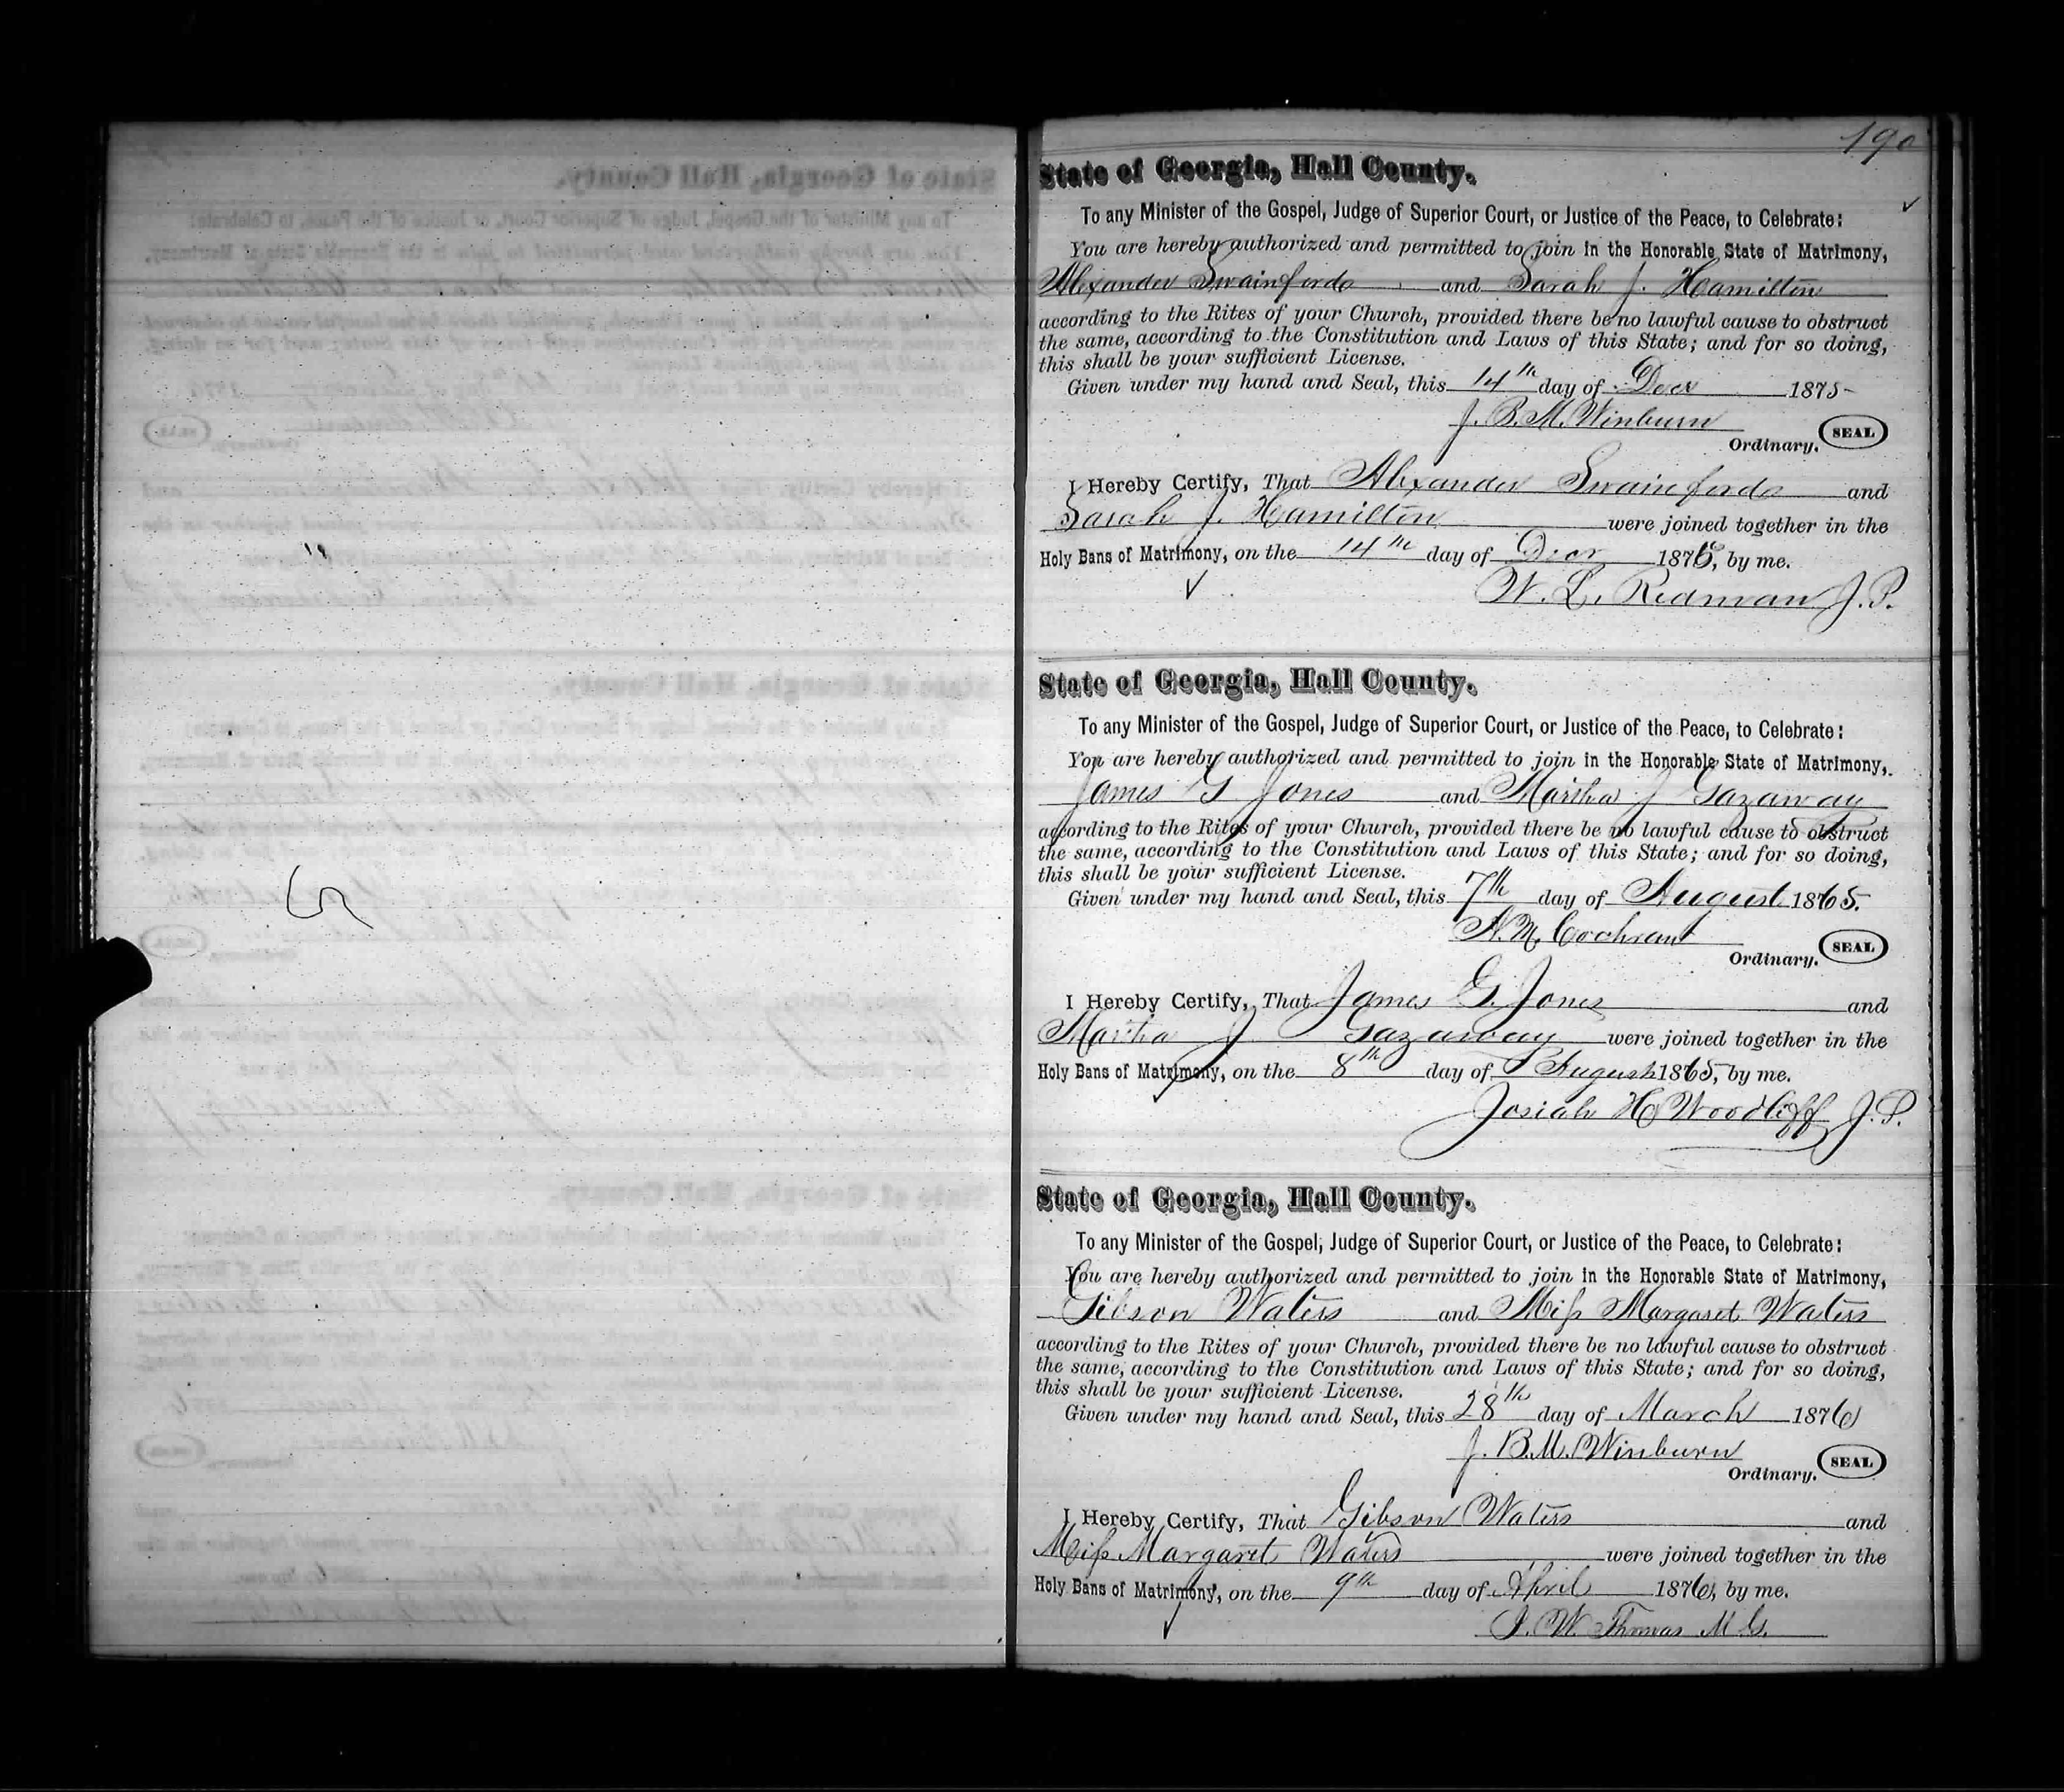 190
State of Georgia, Hall County.
To any Minister of the Gospel, Judge of Superior Court, or Justice of the Peace, to Celebrate:
You are hereby authorized and permitted to join in the Honorable State of Matrimony,
Alexander Swainfords and Sarah J. Hamilton
according to the Rites of your Church, provided there be no lawful cause to obstruct
the same, according to the Constitution and Laws of this State; and for so doing,
this shall be your sufficient License.
Given under my hand and Seal, this 14th day of Decr 1875
J. B. M. Winburn
Ordinary. SEAL
I Hereby Certify, That Alexander Swainfords and
Sarah J. Hamilton were joined together in the
Holy Bans of Matrimony, on the 14th day of Decr 1875, by me.
W. L. Redman J. P.
State of Georgia, Hall County.
To any Minister of the Gospel, Judge of Superior Court, or Justice of the Peace, to Celebrate:
You are hereby authorized and permitted to join in the Honorable State of Matrimony,
James G Jones and Martha J Gazaway
according to the Rites of your Church, provided there be no lawful cause to obstruct
the same, according to the Constitution and Laws of this State; and for so doing,
this shall be your sufficient License.
Given under my hand and Seal, this 7th day of August 1865.
N. M. Cochran
Ordinary. SEAL
I Hereby Certify, That James G. Jones and
Martha J Gazaway were joined together in the
Holy Bans of Matrimony, on the 8th day of August 1865, by me.
Josiah H Woodliff J. P.
State of Georgia, Hall County.
To any Minister of the Gospel, Judge of Superior Court, or Justice of the Peace, to Celebrate:
You are hereby authorized and permitted to join in the Honorable State of Matrimony,
Gibson Waters and Miss Margaret Waters
according to the Rites of your Church, provided there be no lawful cause to obstruct
the same, according to the Constitution and Laws of this State; and for so doing,
this shall be your sufficient License.
Given under my hand and Seal, this 28th day of March 1876
J. B. M. Winburn
Ordinary. SEAL
I Hereby Certify, That Gibson Waters and
Miss Margaret Waters were joined together in the
Holy Bans of Matrimony, on the 9th day of April 1876, by me.
J. W. Thomas M G.